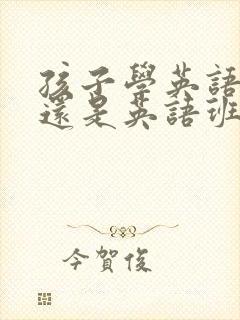 孩子學英語
還是英語班
今賀俊